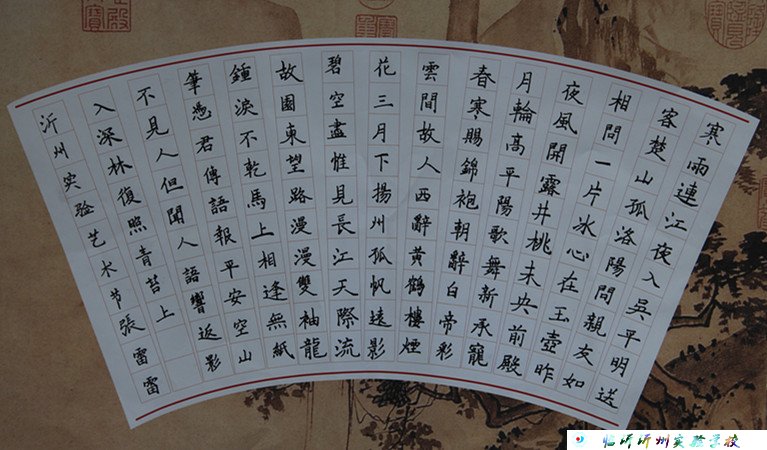 寒雨連江夜入吳平明送
客楚山孤洛陽問親友如
相問一片冰心在玉壺昨
夜風開露井桃未央前殿
月輪高平陽歌舞新承寵
春寒賜錦袍朝辭白帝彩
雲間故人西辭黄鶴樓煙
花三月下揚州孤帆遠影
碧空盡惟見長江天際流
故園東望路漫漫雙袖龍
鍾淚不乾馬上相逢無紙
筆憑君傳語報平安空山
不見人但聞人語響返影
入深林復照青苔上
沂州实验艺术节張雷雷
临沂沂州实验学校